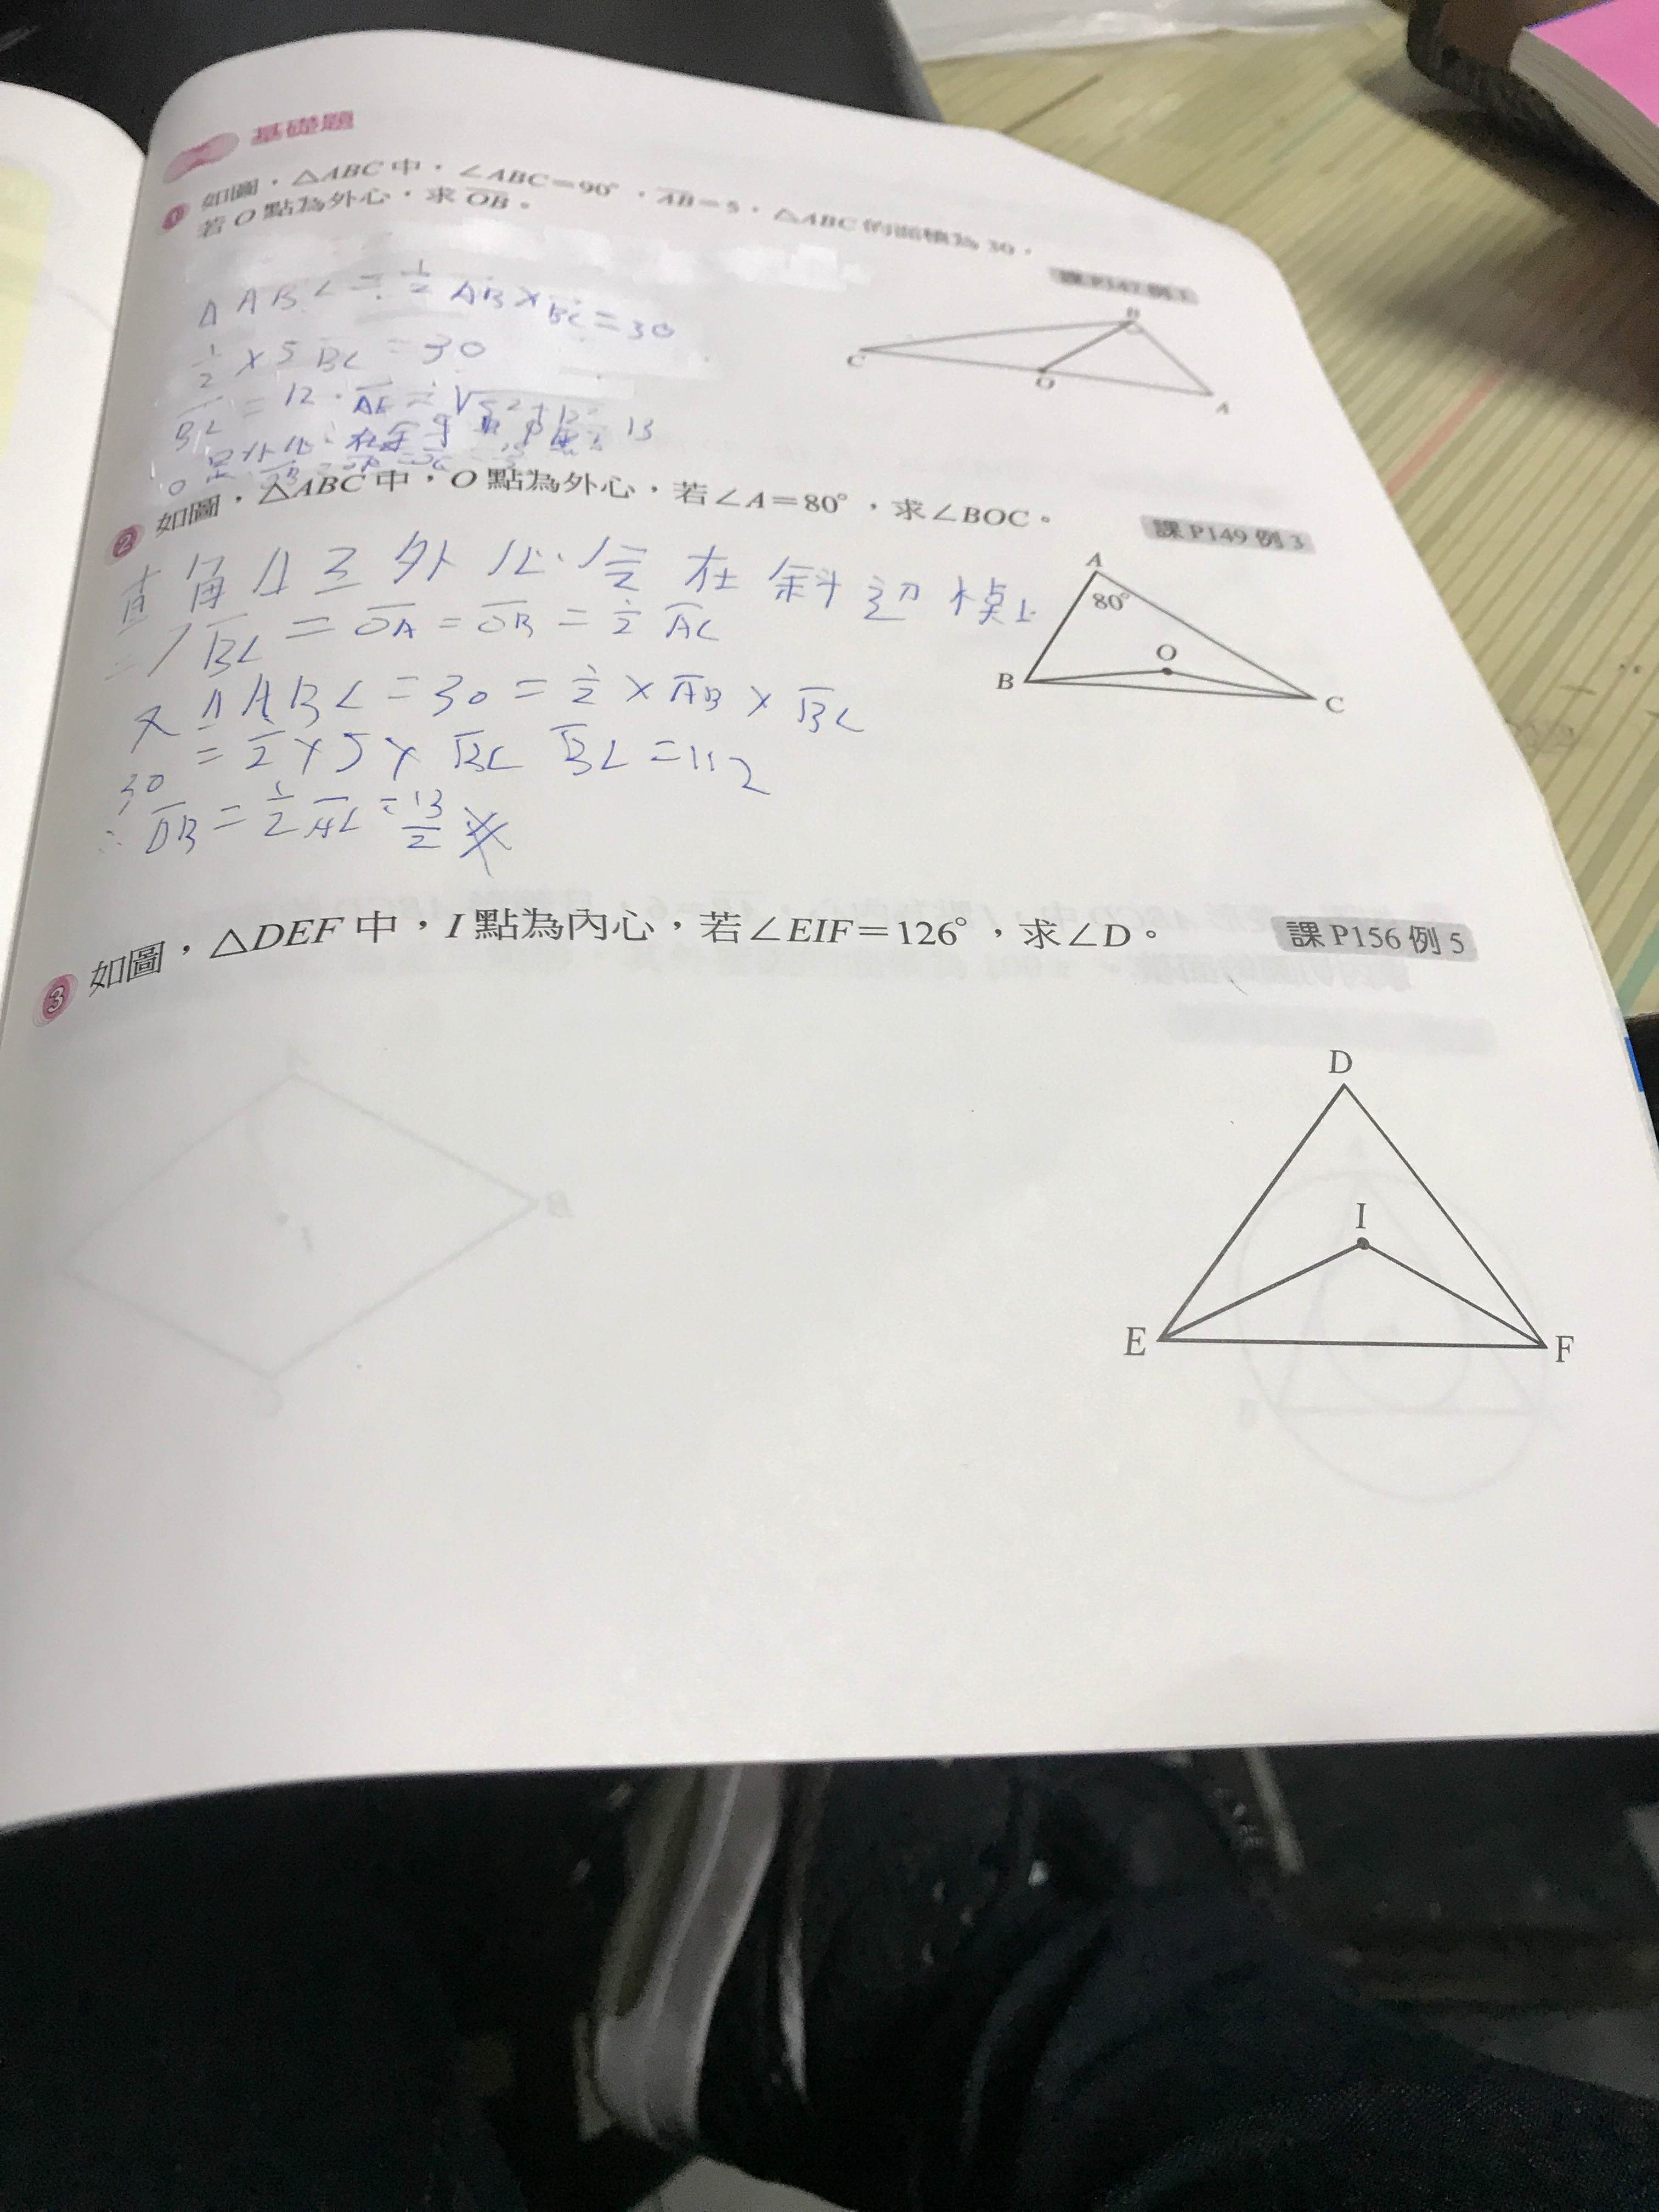 基礎題
1 如圖，△ABC 中，∠ABC=90°，AB=5，△ABC 的面積為 30，
若 O 點為外心，求 OB。
課 P147 例 1
△ABC = 1/2 AB × BC = 30
1/2 × 5 BC = 30
BC = 12
√5²+12² 13
B
C
O
A
2 如圖，△ABC 中，O 點為外心，若∠A=80°，求∠BOC。
課 P149 例 3
直角△ 外心 在斜边
BC = OA = OB = 1/2 AC
又 △ABC = 30 = 1/2 × AB × BC
30 = 1/2 × 5 × BC BC = 12
∴ OB = 1/2 AC = 13/2
A
80°
O
B
C
3 如圖，△DEF 中，I 點為內心，若∠EIF=126°，求∠D。
課 P156 例 5
D
I
E
F